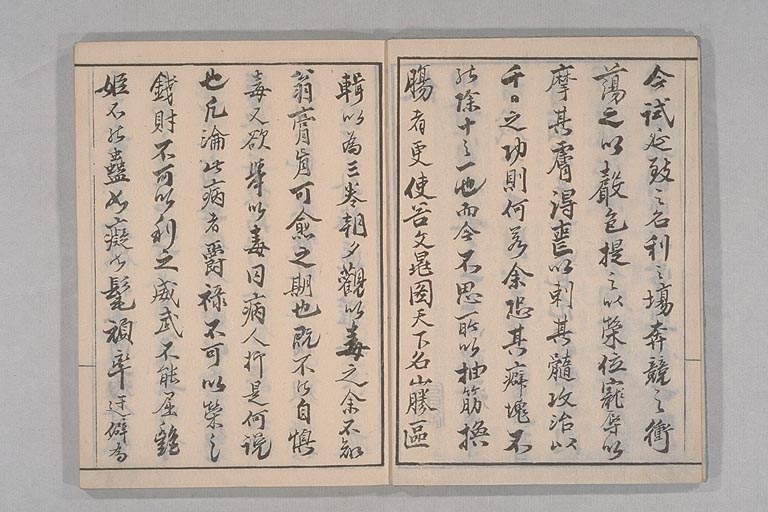 今試延致之名利之場奔競之衝
蕩之以聲色提之以榮位寵华以
摩其膚淂以刺其髓攻治以
千日之功則何若余恐其癖塊不
能除十之一也而今不思所以抽筋換
腸者更使谷文晁圖天下名山勝區
輯以為三卷朝夕觀以毒之余不知
翁膏肓可愈之期也既不能自慎
毒又欲舉以毒同病人抑是何説
也凡淪此病者爵祿不可以榮之
錢財不可以利之威武不能屈艷
姬不能蠱少癡少髦頑率迂僻為